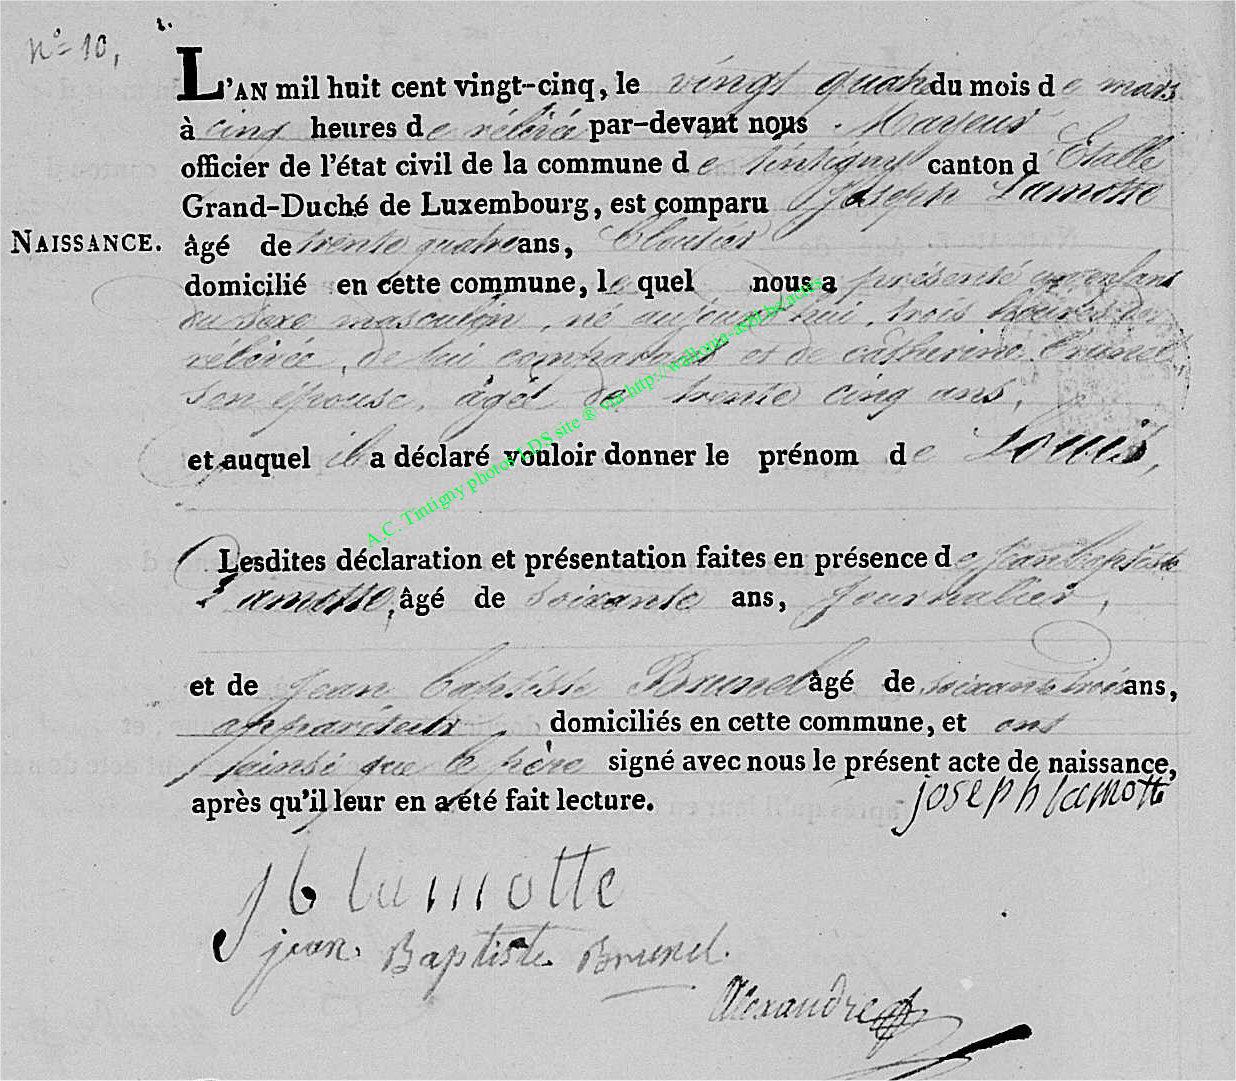 N° 10,
L'AN mil huit cent vingt-cinq, le vingt quatre du mois de mars
à cinq heures de rélevée par-devant nous Mayeur
officier de l'état civil de la commune de tintigny canton d'Etalle
Grand-Duché de Luxembourg, est comparu Joseph Lamotte
NAISSANCE.
âgé de trente quatre ans, Cloutier
domicilié en cette commune, le quel nous a présenté un enfant
du sexe masculin, né aujourd'hui, trois heures de
rélevée, de lui comparant et de catherine brunel
son épouse, âgée de trente cinq ans,
et auquel il a déclaré vouloir donner le prénom de Louis,
A.C. Tintigny photos LDS site ® via http://wallonia-asbl.be/actes
Lesdites déclaration et présentation faites en présence de jean baptiste
Lamotte, âgé de soixante ans, journalier,
et de jean baptiste Brunel âgé de soixante trois ans,
appariteur, domiciliés en cette commune, et ont
ainsi que le père signé avec nous le présent acte de naissance,
après qu'il leur en a été fait lecture.
joseph lamotte
J b lamotte
jean Baptiste Brunel.
Alexandre